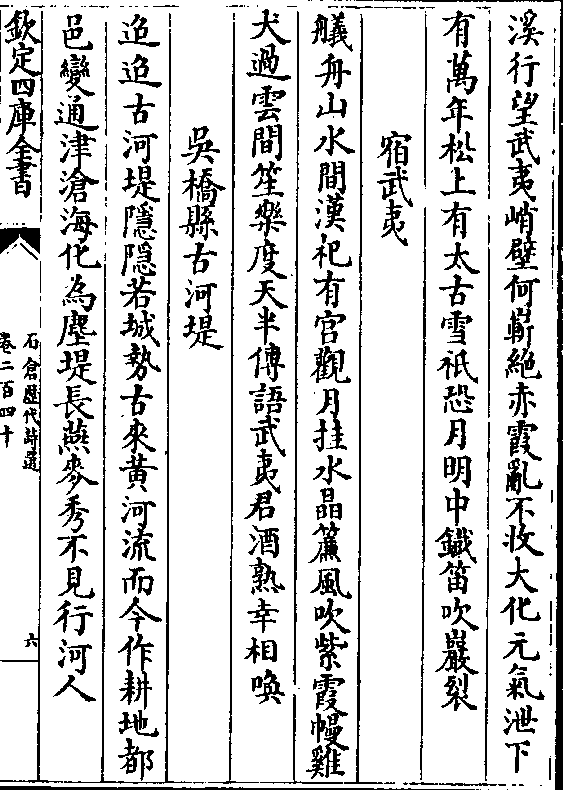 溪行望武夷峭壁何嶄絶赤霞亂不收大化元氣泄下
有萬年松上有太古雪祇恐月明中鐡笛吹巖裂
宿武夷
艤舟山水間漢祀有宫觀月挂水晶簾風吹紫霞幔雞
犬過雲間笙樂度天半傳語武夷君酒熟幸相喚
吳橋縣古河堤
迢迢古河堤隱隱若城勢古來黄河流而今作耕地都
邑變通津滄海化為塵堤長燕麥秀不見行河人
欽定四庫全書
石倉歷代詩選
卷二百四十
六